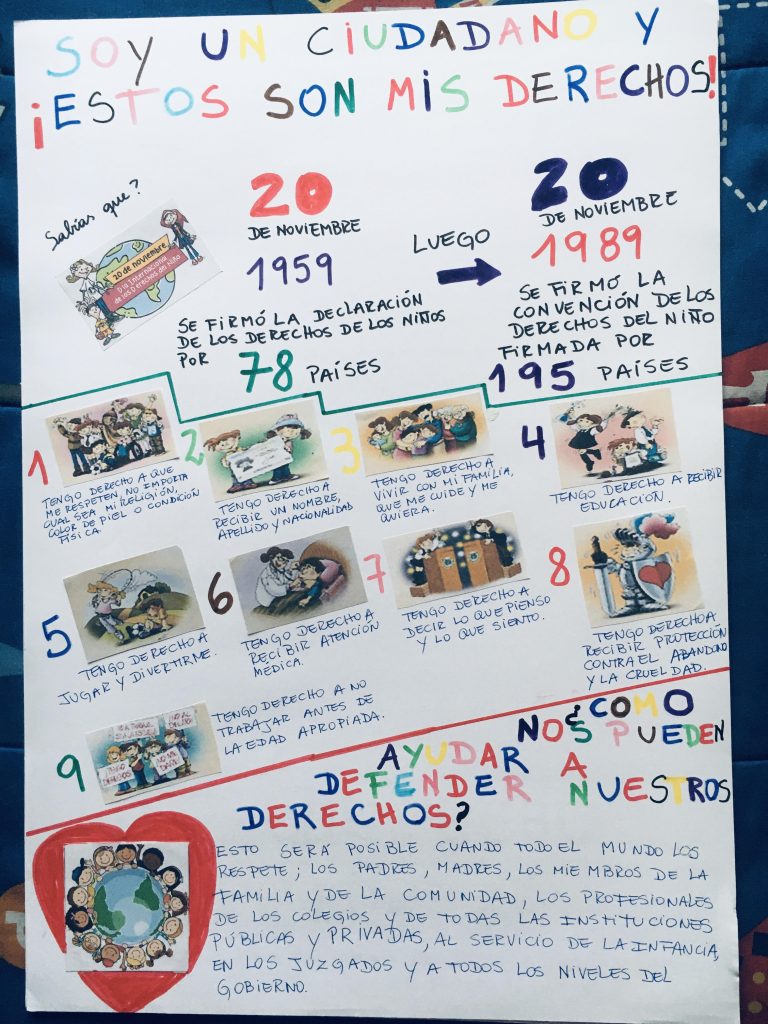 SOY UN CIUDADANO Y
¡ESTOS SON MIS DERECHOS!
Sabías que?
20 de noviembre
Día Internacional
de los Derechos del Niño
20
DE NOVIEMBRE
1959
SE FIRMÓ LA DECLARACIÓN
DE LOS DERECHOS DE LOS NIÑOS
POR 78 PAÍSES
LUEGO
20
DE NOVIEMBRE
1989
SE FIRMÓ LA
CONVENCIÓN DE LOS
DERECHOS DEL NIÑO
FIRMADA POR
195 PAÍSES
1
TENGO DERECHO A QUE
ME RESPETEN, NO IMPORTA
CUAL SEA MI RELIGIÓN,
COLOR DE PIEL O CONDICIÓN
FÍSICA
2
TENGO DERECHO A
RECIBIR UN NOMBRE,
APELLIDO Y NACIONALIDAD
3
TENGO DERECHO A
VIVIR CON MI FAMILIA,
QUE ME CUIDE Y ME
QUIERA.
4
TENGO DERECHO A RECIBIR
EDUCACIÓN.
5
TENGO DERECHO A
JUGAR Y DIVERTIRME.
6
TENGO DERECHO A
RECIBIR ATENCIÓN
MÉDICA.
7
TENGO DERECHO A
DECIR LO QUE PIENSO
Y LO QUE SIENTO.
8
TENGO DERECHO A
RECIBIR PROTECCIÓN
CONTRA EL ABANDONO
Y LA CRUELDAD.
9
TENGO DERECHO A NO
TRABAJAR ANTES DE
LA EDAD APROPIADA.
¿COMO
NOS PUEDEN
AYUDAR A
DEFENDER NUESTROS
DERECHOS?
ESTO SERÁ POSIBLE CUANDO TODO EL MUNDO LOS
RESPETE; LOS PADRES, MADRES, LOS MIEMBROS DE LA
FAMILIA Y DE LA COMUNIDAD, LOS PROFESIONALES
DE LOS COLEGIOS Y DE TODAS LAS INSTITUCIONES
PÚBLICAS Y PRIVADAS, AL SERVICIO DE LA INFANCIA,
EN LOS JUZGADOS Y A TODOS LOS NIVELES DEL
GOBIERNO.